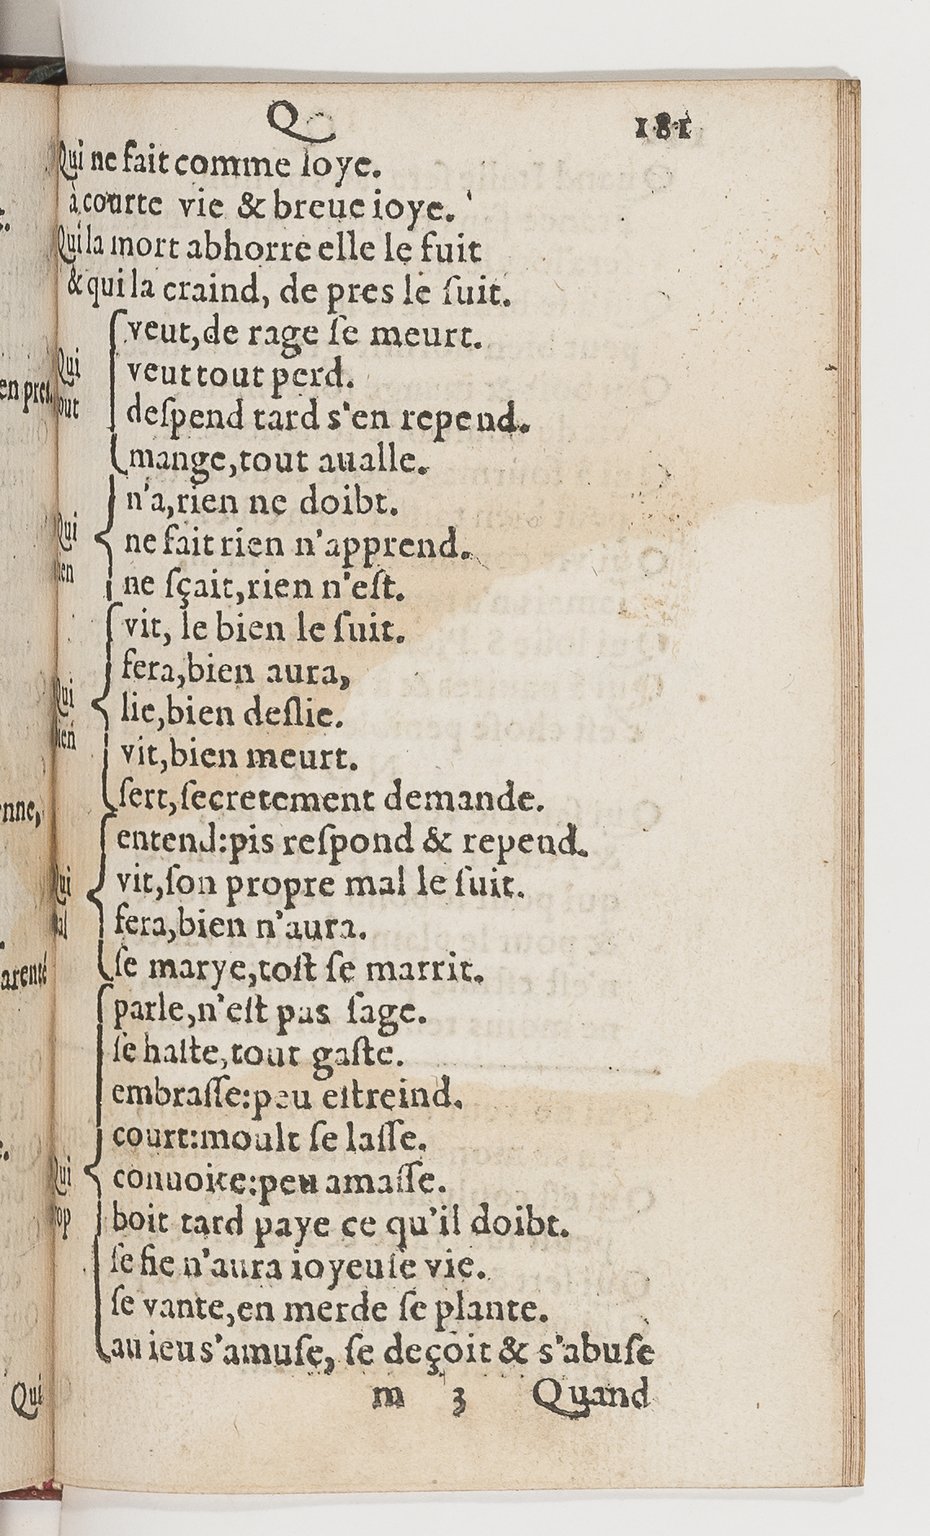 Q 181
Qui ne fait comme loye.
à courte vie & breue ioye.
Qui la mort abhorre elle le fuit
& qui la craind, de pres le ſuit.
Qui tout
veut, de rage ſe meurt.
veut tout perd.
deſpend tard s'en repend.
mange, tout aualle.
Qui rien
n'a, rien ne doibt.
ne fait rien n'apprend.
ne ſçait, rien n'eſt.
Qui bien
vit, le bien le ſuit.
fera, bien aura,
lie, bien deſlie.
vit, bien meurt.
ſert, ſecretement demande.
Qui mal
entend: pis reſpond & repend.
vit, ſon propre mal le ſuit.
fera, bien n'aura.
ſe marye, toſt ſe marrit.
Qui trop
parle, n'eſt pas ſage.
ſe haſte, tout gaſte.
embraſſe: peu eſtreind.
court: moult ſe laſſe.
conuoite: peu amaſſe.
boit tard paye ce qu'il doibt.
ſe fie n'aura ioyeuſe vie.
ſe vante, en merde ſe plante.
au ieu s'amuſe, ſe deçoit & s'abuſe
m 3 Quand
en pres.
enne,
arenté
Qui